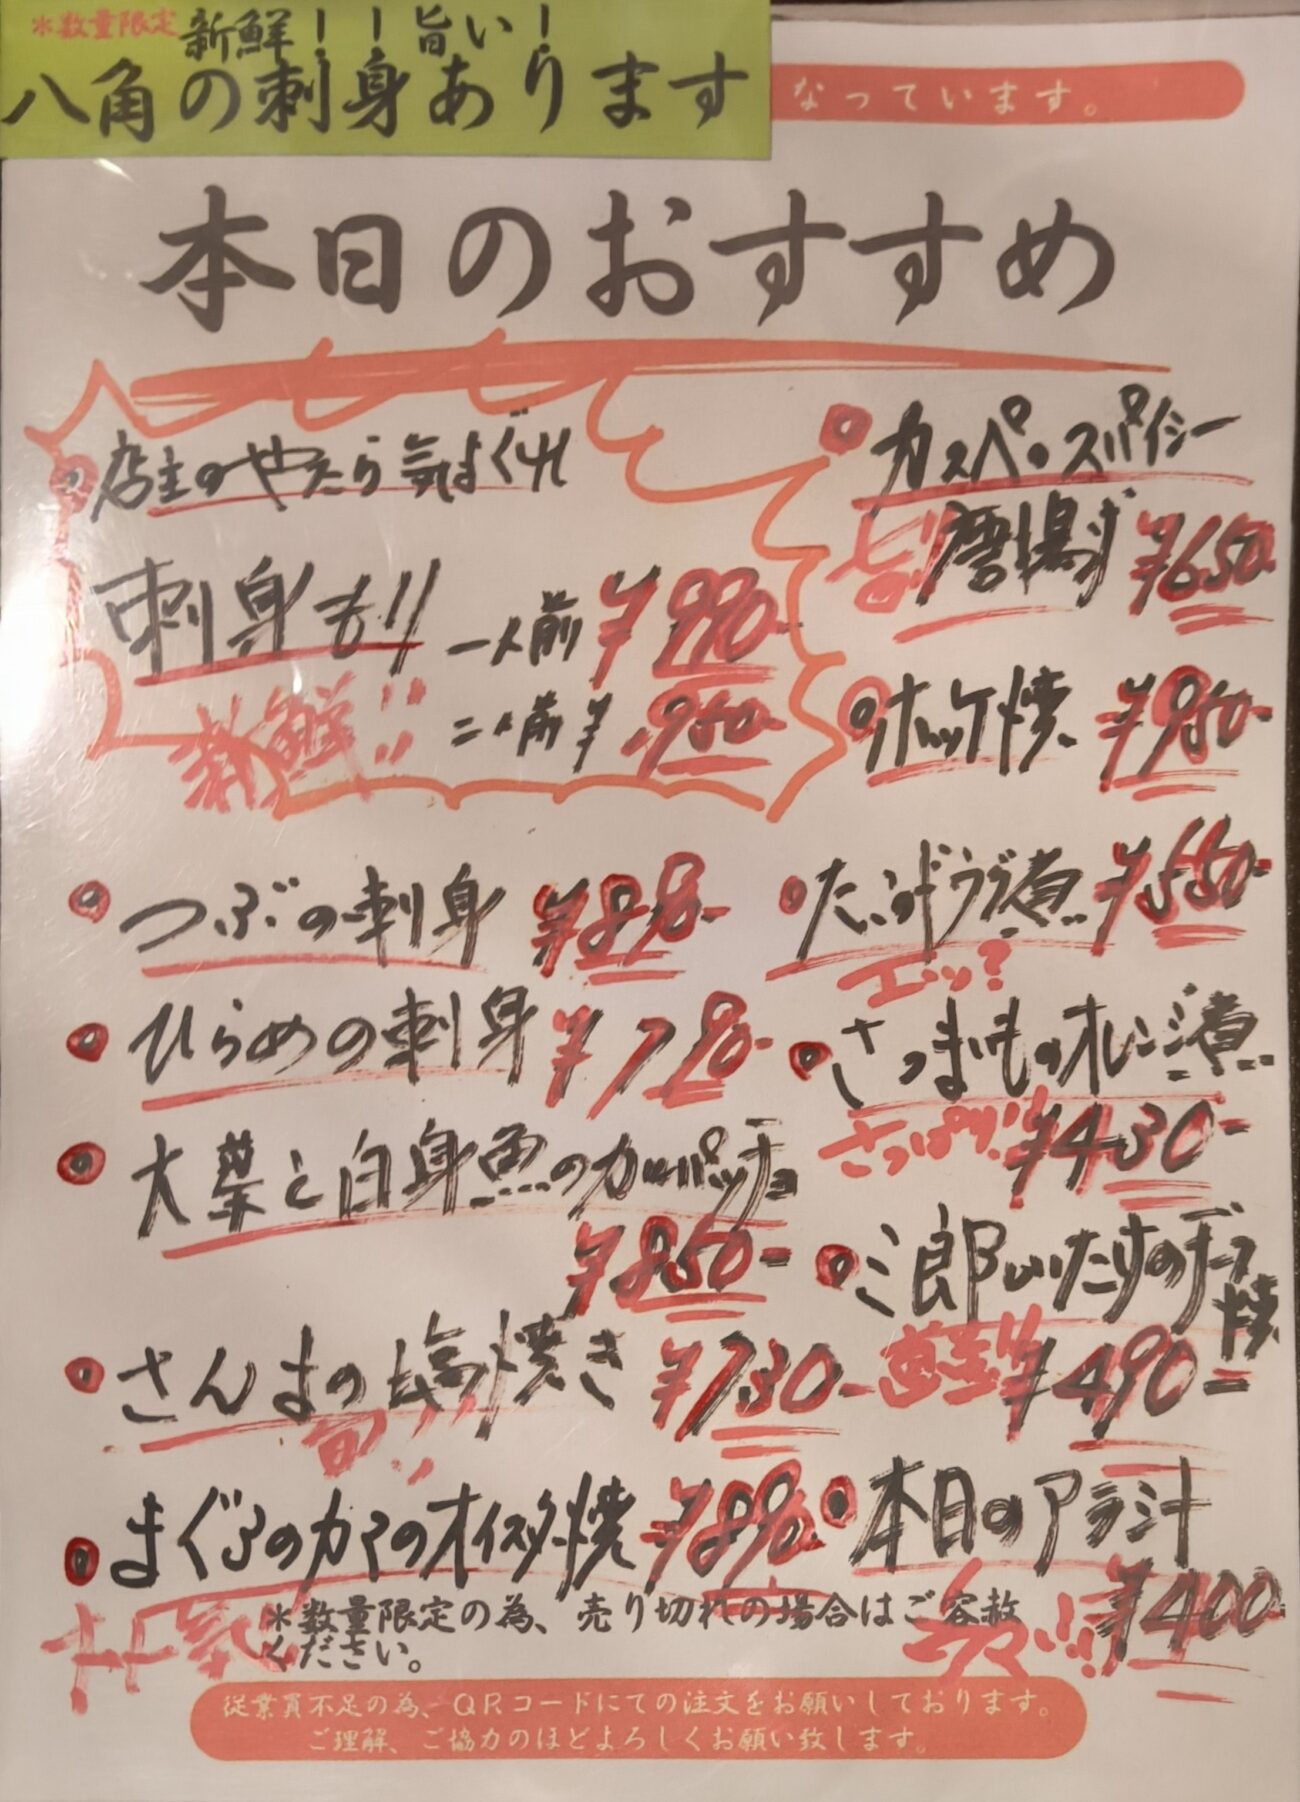 *数量限定 新鮮！！旨い！
八角の刺身あります
なっています。
本日のおすすめ
店主のやたら気まぐれ
刺身もり 一人前 ¥990-
新鮮!! 二人前 ¥1,950-
つぶの刺身 ¥890-
ひらめの刺身 ¥790-
大葉と白身魚のカルパッチョ
¥850-
さんまの塩焼き ¥730-
旬!!
まぐろのカマのオイスター焼 ¥890-
大人気
カスペのスパイシー
旨!! 唐揚げ ¥650-
ホッケ焼 ¥950-
たいの ¥550-
エッ?
さつまいものオレンジ煮
さっぱり! ¥430-
三郎しいたけのチーズ焼
¥490-
本日のアラ汁
ウマい!! ¥400
*数量限定の為、売り切れの場合はご容赦
ください。
従業員不足の為、QRコードにての注文をお願いしております。
ご理解、ご協力のほどよろしくお願い致します。